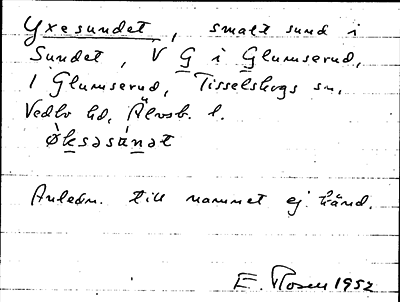 Yxesundet, smalt sund i
Sundet, V G i Glumserud,
1 Glumserud, Tisselskogs sn,
Vedbo hd, Älvsb. l.
øksəsúnət
Anledn. till namnet ej känd.
E. Rosen 1952